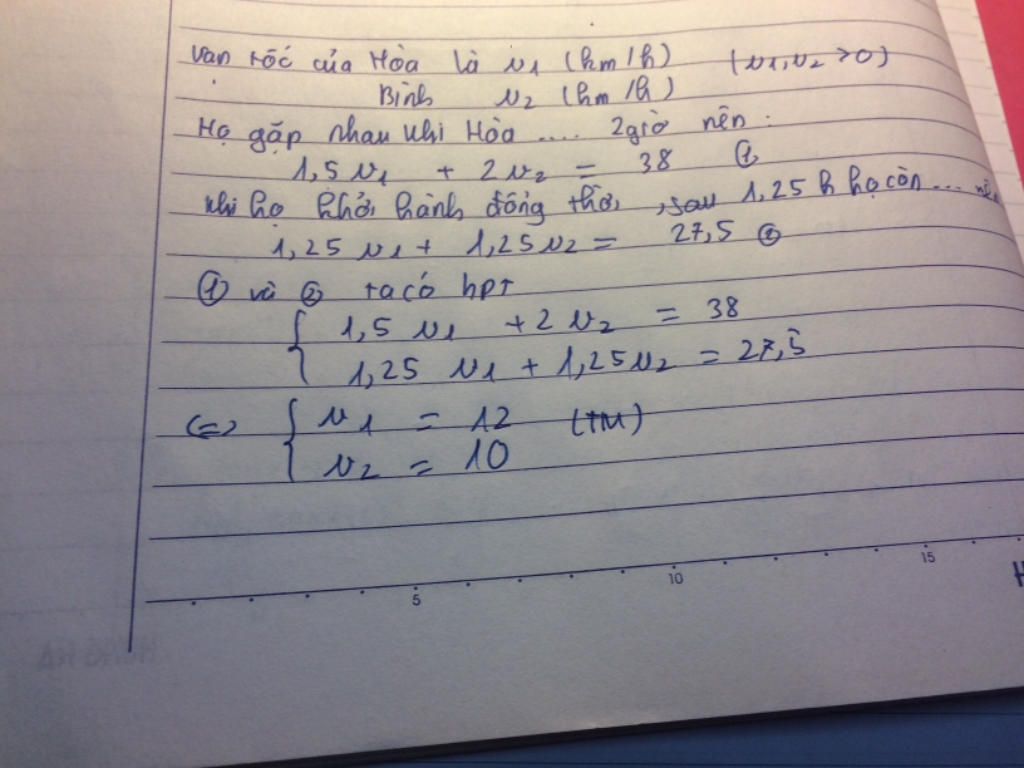 Vận tốc của Hòa là v1 (km/h) (v1,v2 >0)
Bình v2 (km/h)
Họ gặp nhau khi Hòa .... 2giờ nên :
1,5v1 + 2v2 = 38 ①
khi họ khởi hành đồng thời, sau 1,25 h họ còn ... nên
1,25 v1 + 1,25v2 = 27,5 ②
① và ② ta có hpt
{ 1,5 v1 + 2 v2 = 38
1,25 v1 + 1,25v2 = 27,5
<=> { v1 = 12 (TM)
v2 = 10
5 10 15